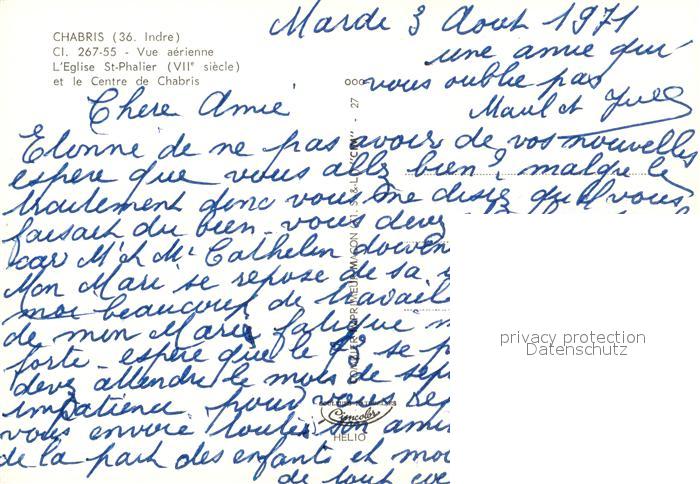 CHABRIS (36. Indre)
Cl. 267-55 - Vue aérienne
L'Eglise St-Phalier (VIIe siècle)
et le Centre de Chabris
Mardi 3 Aout 1971
une amie qui
vous oublie pas
Chere Amie
Etonne de ne pas avoir de vos nouvelles
espere que vous allz bien? malgre le
traitement donc vous me disiez qu'il vous
faisait du bien - vous devez
car Mr et Me Cathelin doiven
Mon Mari se repose de sa
moi beaucoup de travail
de mon Marie fatigue
forte - espere que le se
devez attendre le mois de sep
impatience pour vous
vous envoie toute son ami
de la part des enfants et moi
de tout coe
27
Cimcolor
HELIO
privacy protection
Datenschutz